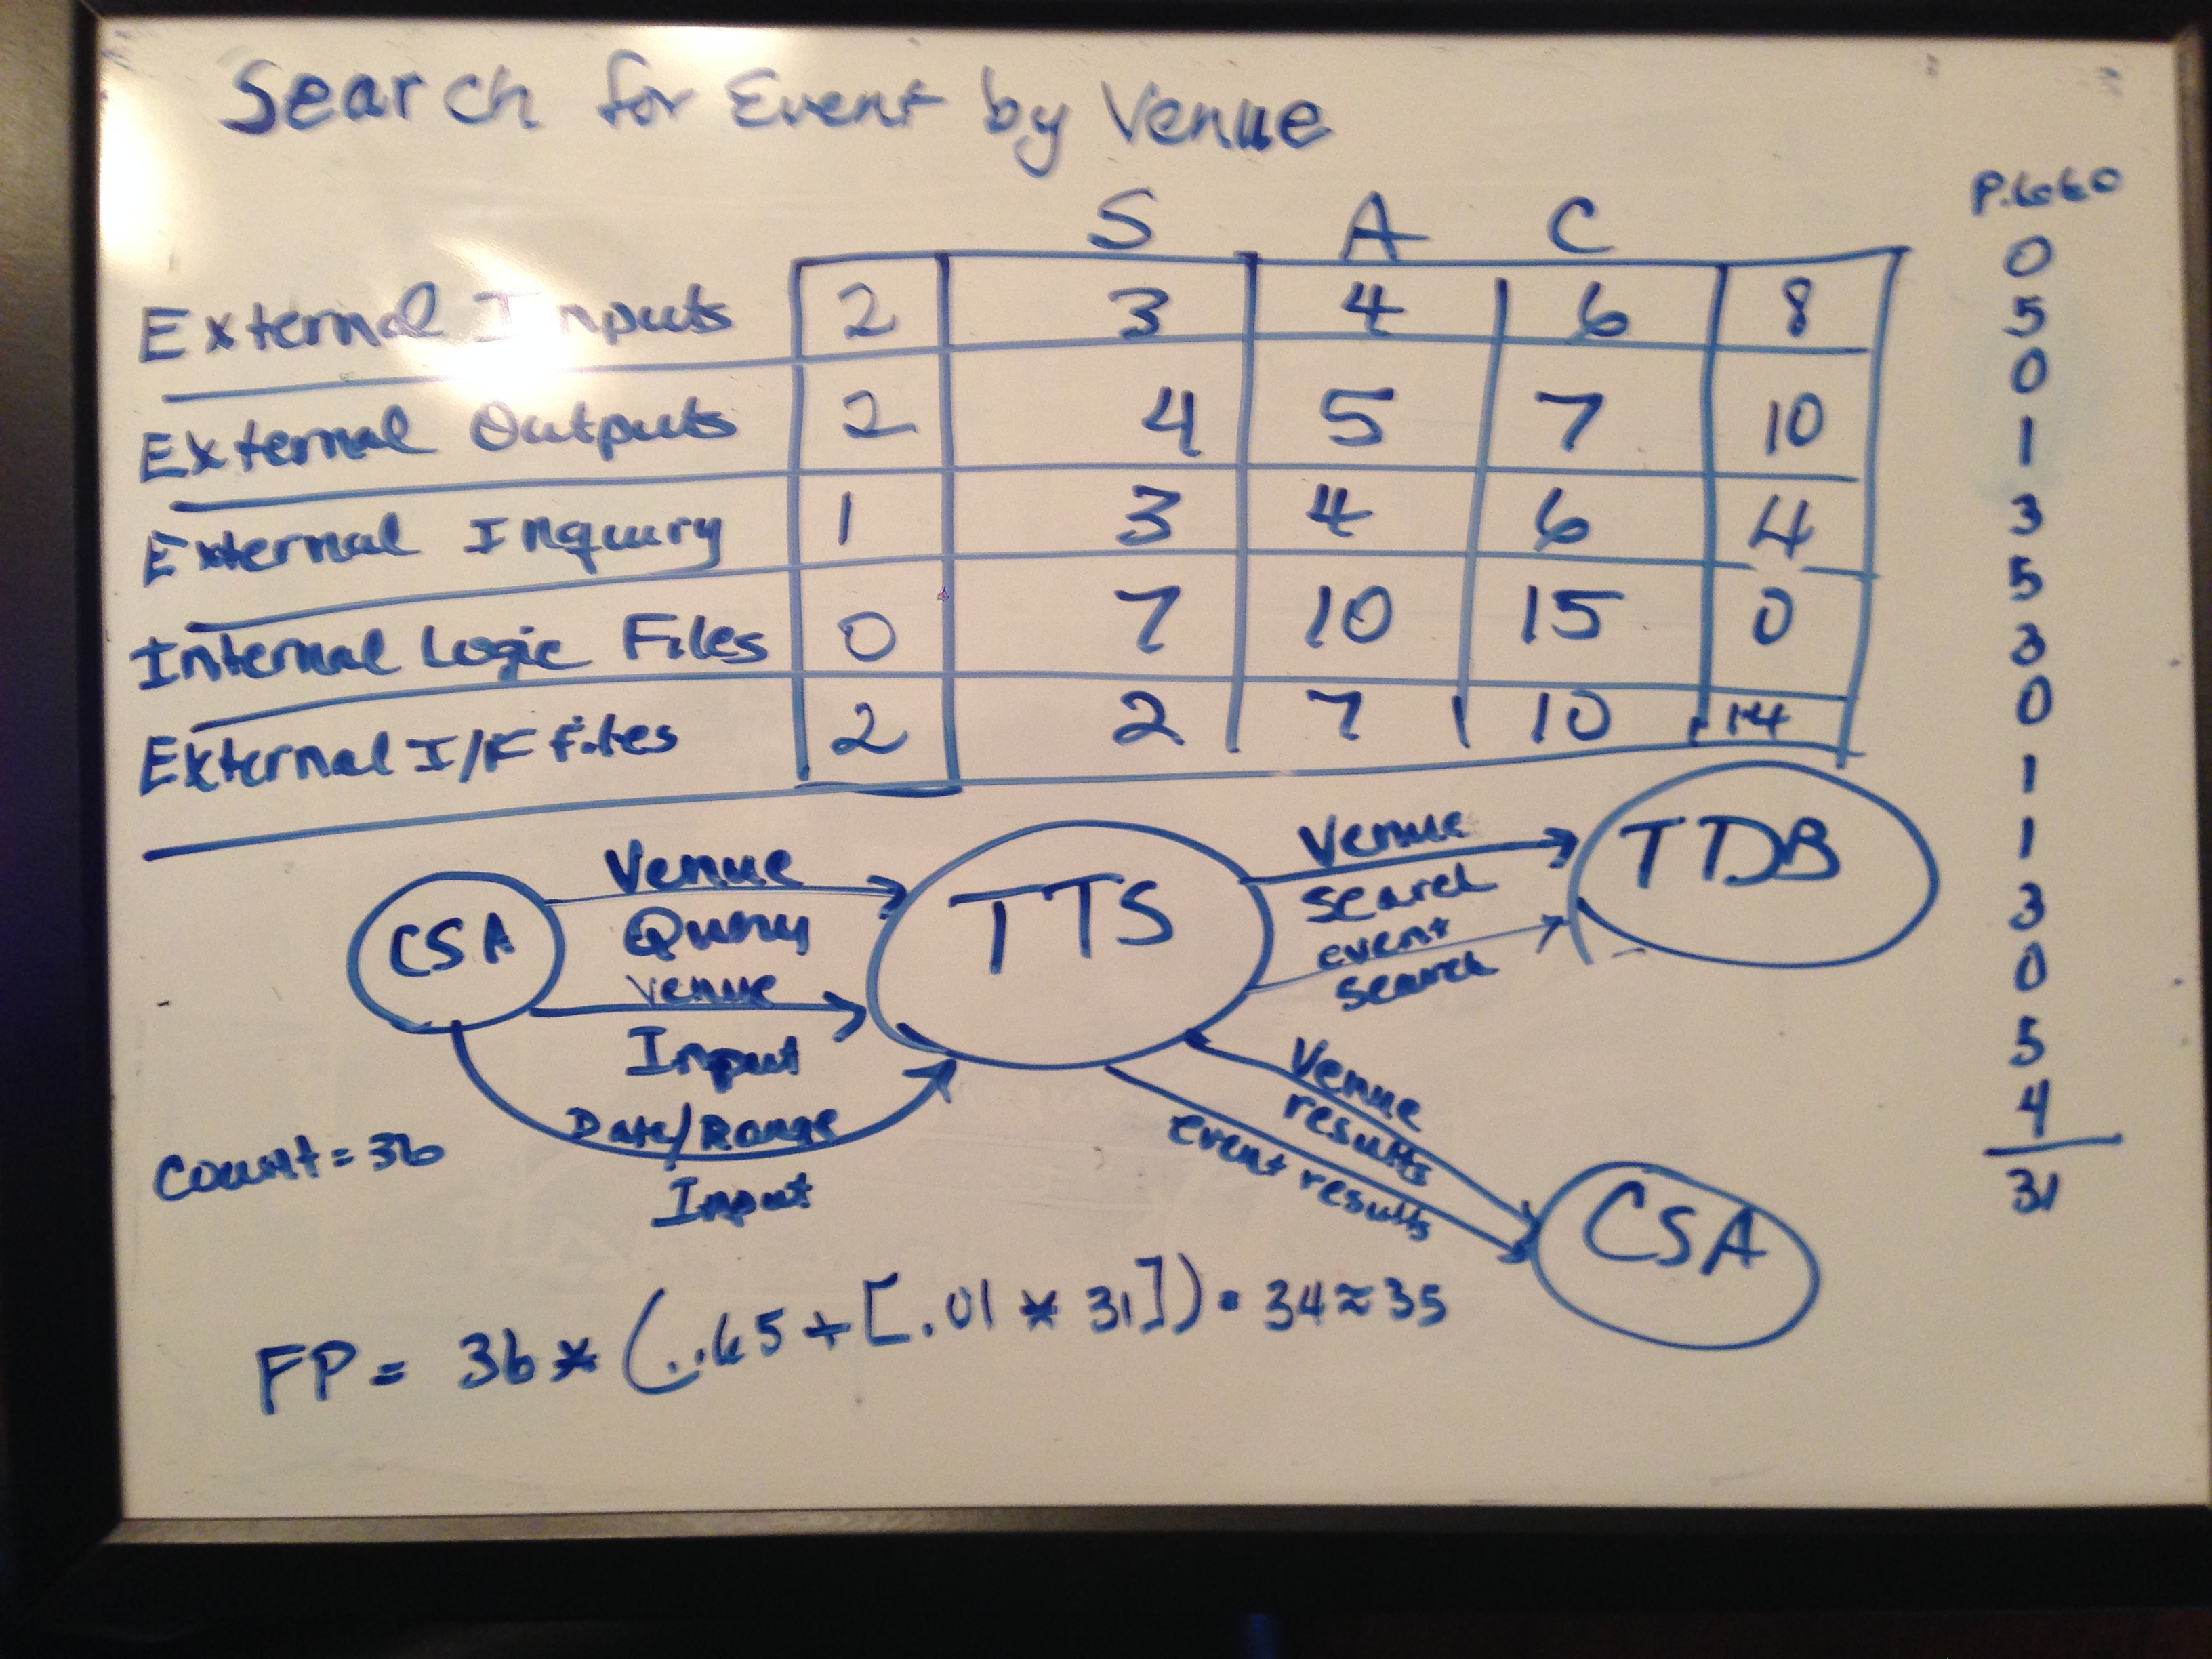 Search for Event by Venue
S A C
External Inputs 2 3 4 6 8
External Outputs 2 4 5 7 10
External Inquiry 1 3 4 6 4
Internal Logic Files 0 7 10 15 0
External I/F Files 2 2 7 10 14
CSA
Venue
Query
Venue
Input
Date/Range
Input
TTS
Venue
Search
event
search
TDB
Venue
results
event results
CSA
Count = 36
FP = 36 * (.65 + [.01 * 31]) = 34 ≈ 35
0
5
0
1
3
5
3
0
1
1
3
0
5
4
31